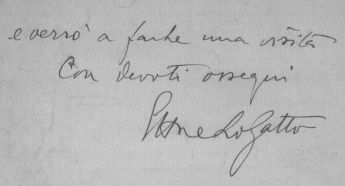 e verrò a farle una visita
Con devoti ossequi
Ettore Lo Gatto